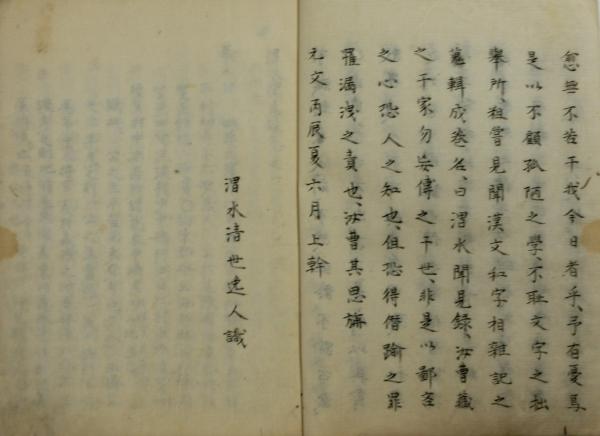 愈無不若于我今日者乎、予有憂焉
是以不顧孤陋之學、不耻文字之拙
舉所、祖嘗見聞漢文、和字相雜記之
蒐輯成卷、名曰渭水聞見録、汝曹藏
之于家、勿妄傳之于世、非是以鄙吝
之心恐人之知也、但恐得僭踰之罪
罹漏洩之責也、汝曹其思旃
元文丙辰夏六月上幹
渭水清世逸人識